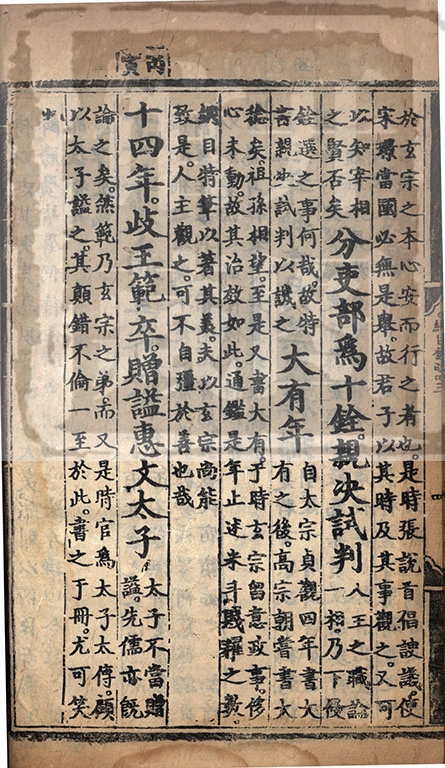 丙寅
於玄宗之本心安而行之者也。是時張說首倡諛議。使
宋璟當國必無是舉。故君子以其時及其事觀之。又可
以知宰相
之賢否矣
分吏部爲十銓。親決試判
人主之職論
一相。乃下侵
銓選之事何哉。故特
書親決試判以譏之
大有年
自太宗貞觀四年書大
有之後。高宗朝嘗書大
稔矣。祖孫相望。至是又書大有于時玄宗留意政事。侈
心未動。故其治效如此。通鑑是年止述米斗賤糶之數
綱目特筆以著其美。夫以玄宗尚能
致是。人主觀之。可不自彊於善也哉
十四年。歧王範卒。贈謚惠文太子
太子不當贈
謚。先儒亦旣
論之矣。然範乃玄宗之弟。而又是時官爲太子太傅。顧
以太子謚之。其顛錯不倫一至於此。書之于冊。尤可笑